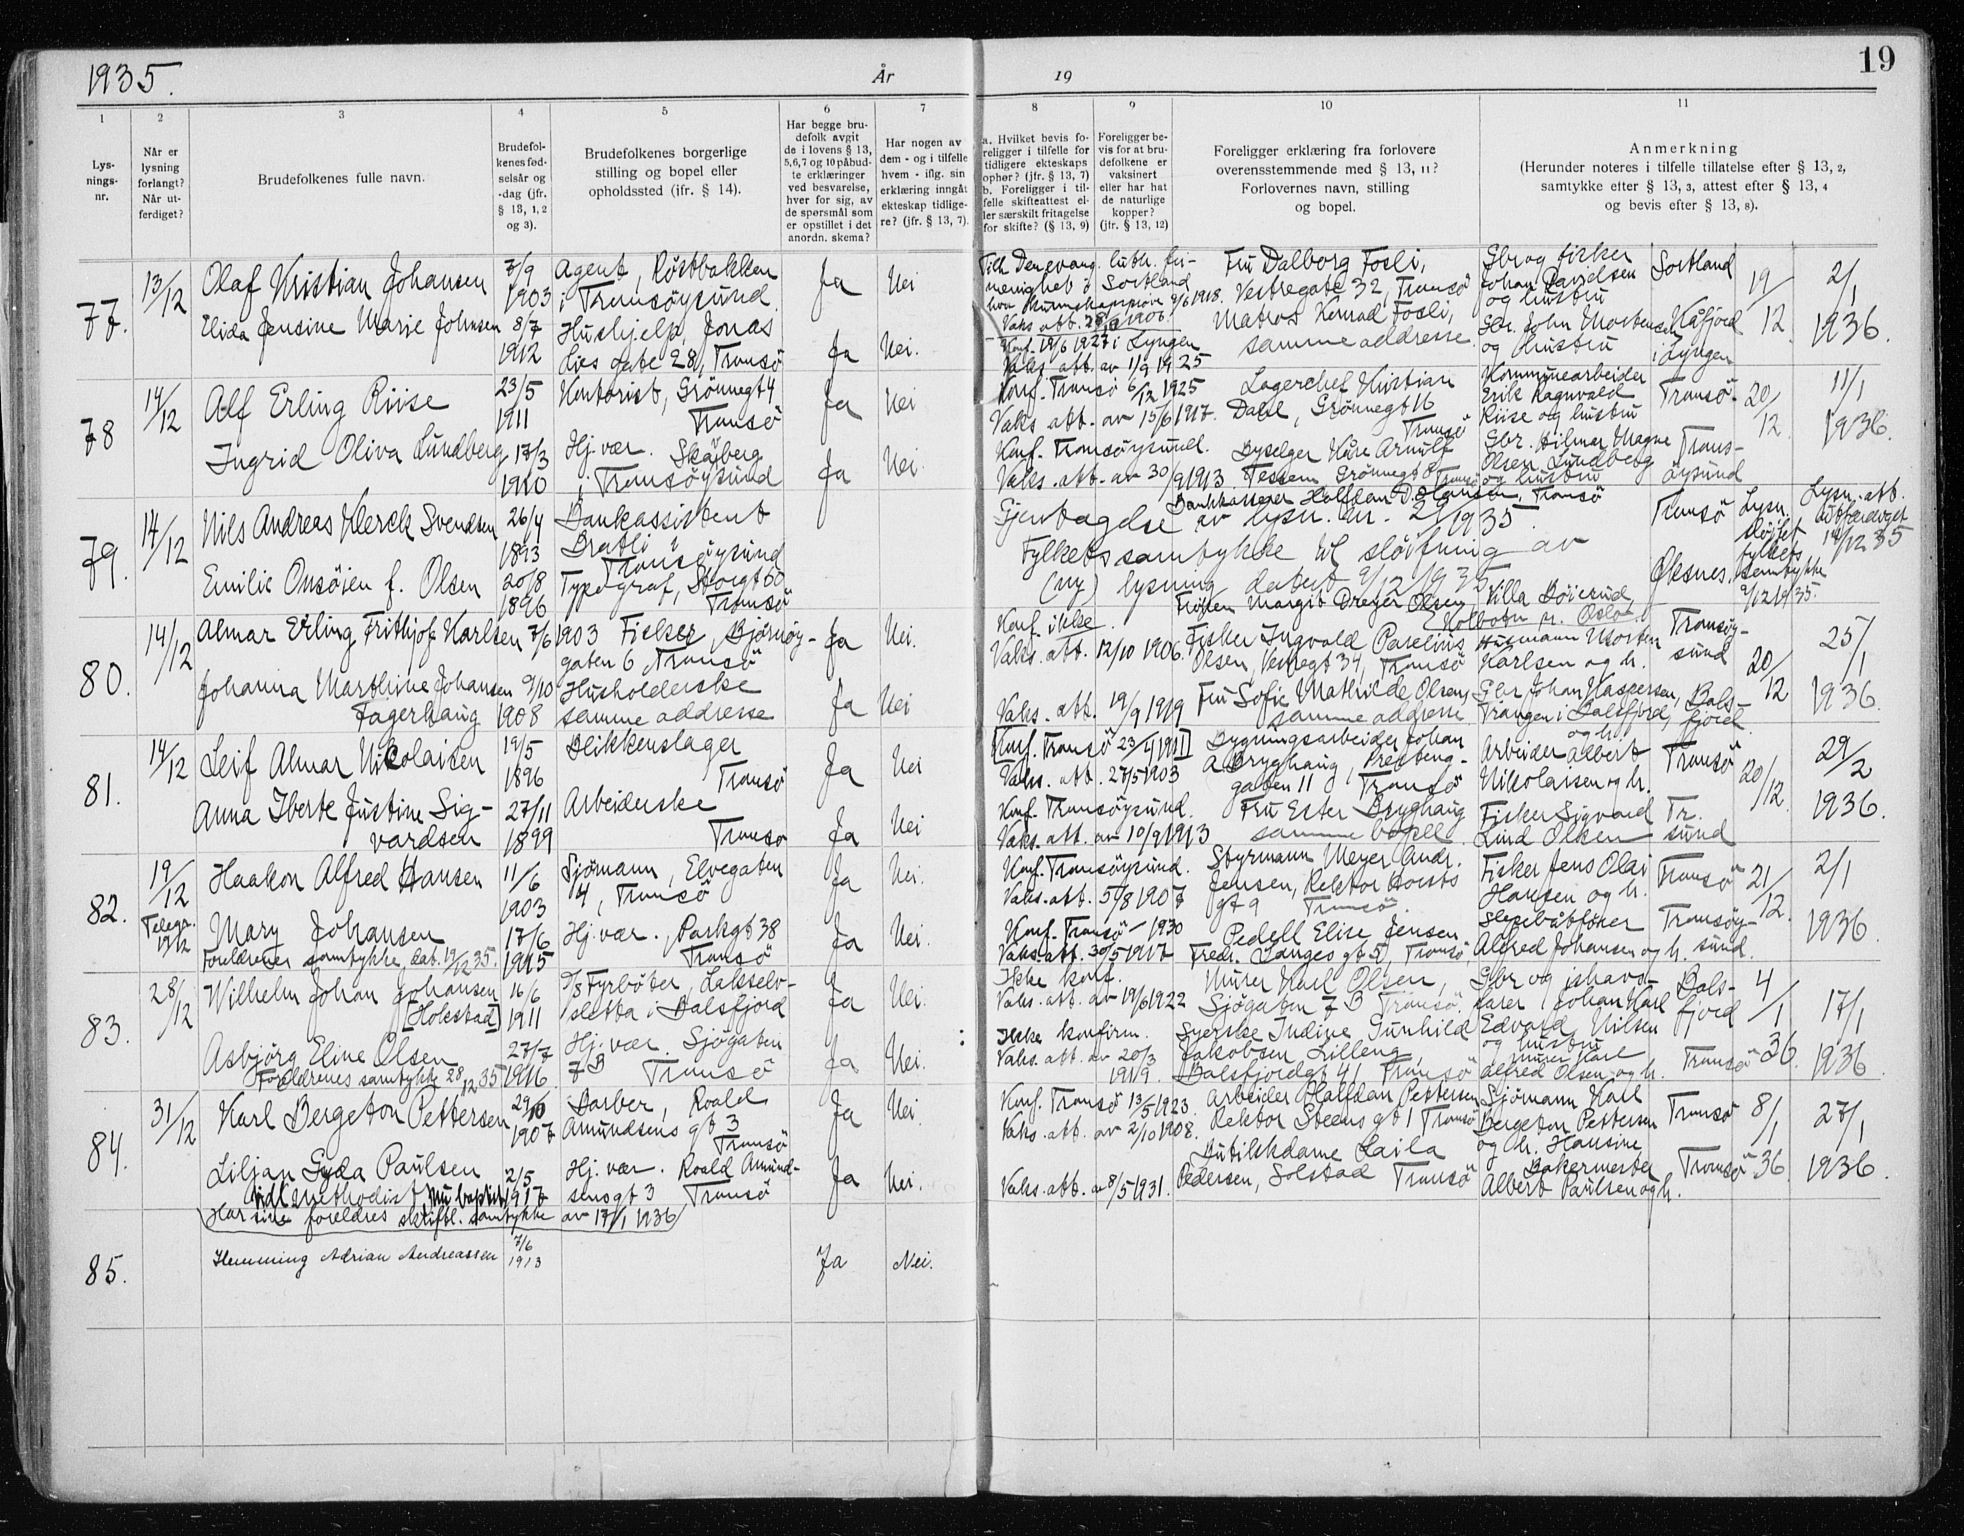 1935.
År
19
19
1
2
3
4
5
6
7
8
9
10
11
Lys-
nings-
nr.
Når er
lysning
forlangt?
Når ut-
ferdiget?
Brudefolkenes fulle navn.
Brudefol-
kenes fød-
selsår og
-dag (jfr.
§ 13, 1, 2
og 3).
Brudefolkenes borgerlige
stilling og bopel eller
opholdssted (ifr. § 14).
Har begge bru-
defolk avgit
de i lovens § 13,
5,6,7 og 10 påbud-
te erklæringer
ved besvarelse,
hver for sig, av
de spørsmål som
er opstillet i det
anordn. skema?
Har nogen av
dem - og i tilfelle
hvem - iflg. sin
erklæring inngått
ekteskap tidlige-
re? (jfr. § 13, 7).
a. Hvilket bevis fo-
religger i tilfelle for
tidligere ekteskaps
ophør? (jfr. § 13, 7)
b. Foreligger i til-
felle skifteattest el-
ler særskilt fritagelse
for skifte? (§ 13, 9)
Foreligger be-
vis for at bru-
defolkene er
vaksinert
eller har hat
de naturlige
kopper?
(jfr. § 13, 12)
Foreligger erklæring fra forlovere
overensstemmende med § 13, 11?
Forlovernes navn, stilling
og bopel.
Anmerkning
(Herunder noteres i tilfelle tillatelse efter § 13, 2,
samtykke etter § 13, 3, attest efter § 13, 4
og bevis efter § 13, 8).
77.
13/12
Olaf Kristian Johansen
7/9
1903
Agent, Röstbakken
i Tromsöysund
Ja
Nei
Tilh. Den evang. luth. fri-
menighet i Sortland
Vaks att.
Fru Dalborg Fosli,
Vestregate 32, Tromsö
Gbr og fisker
Johan Davidsen
og hustru
Sortland
19/12
2/1
1936
Elida Jensine Marie Johnsen
8/7
1912
Hushjelp, Jonas
Lies gate 28, Tromsö
Ja
Nei.
Konf. 19/6 1927 i Lyngen
Vaks att. av 11/9 1925
Matros Konrad Fosli,
samme addresse
Gbr. John Mortensen
og hustru
Kåfjord
i Lyngen
78
14/12
Alf Erling Riise
23/5
1911
Kontorist, Grönnegt 4
Tromsö
Ja
Nei
Konf. Tromsö 6/12 1925
Vaks att. av 15/6 1917.
Lagerchef Kristian
Dahl, Grönnegt 16
Tromsö
Kommunearbeider
Erik Ragnvald
Riise og hustru
Tromsö
20/12
11/1
1936.
Ingrid Oliva Lundberg
17/3
1910
Hj. vær. Skåberg
i Tromsöysund
Ja
Nei.
Konf. Tromsöysund.
Vaks. att. av 30/9 1913
Byselger Kåre Arnulf
Tessem Grönnegt 8 Tromsö
Gbr. Hilmar Magne
Olsen Lundberg
og hustru
Troms-
öysund
79.
14/12
Nils Andreas Klerck Svendsen
26/4
1893
Bankassistent
Bratli i
Tromsöysund
Bankkasserer Halfdan D. Hansen, Tromsö
Gjentagelse av lysn. nr. 29/1935.
Tromsö
Lysn.
sløjfet
fylkets
samtykke
9/12 1935.
Lysn. att.
utferdiget
14/12 35
Emilie Onsöien f. Olsen
20/8
1896
Typograf, Storgt 50
Tromsö
Fylkets samtykke til sløifning av
(ny) lysning datert 9/12 1935
Fröken Margit Dreyer Olsen, Villa Döierud,
Kolbotn pr. Oslo
Øksnes.
80.
14/12
Almar Erling Frithjof Karlsen
7/6
1903
Fisker, Björnöy-
gaten 6, Tromsö
Ja
Nei.
Konf. ikke.
Vaks. att. 12/10 1906.
Fisker Ingvald Parelius
Olsen, Vestregt 34, Tromsö
Husmann Morten
Karlsen og h.
Tromsöy-
sund
20/12
25/1
1936.
Johanna Marthine Johansen
Fagerhaug
9/10
1908
Husholderske
samme addresse
Ja
Nei
Vaks. att. 19/9 1919
Fru Sofie Mathilde Olsen,
samme addresse
Gbr. Johan Kaspersen,
Trangen i Balsfjord,
og h.
Bals-
fjord
81.
14/12
Leif Almar Nikolaisen
19/5
1896
Blikkenslager
Tromsö
Ja
Nei
[Konf. Tromsö 23/4 1911]
Vaks. att. 27/5 1903
Bygningsarbeider Johan
A Bryghaug, Presteng-
gaten 11 Tromsö
Arbeider Albert
Nikolaisen og h.
Tromsö
20/12
29/2
1936.
Anna Iberte Justine Sig-
vardsen
27/11
1899
Arbeiderske
Tromsö
Ja
Nei
Konf. Tromsöysund.
Vaks. att. av 10/9 1913
Fru Ester Bryghaug
samme bopell
Fisker Sigvard
Lind Olsen
Tr.
sund
82.
19/12
Haakon Alfred Hansen
11/6
1903
Sjömann, Elvegaten
14, Tromsö
Ja
Nei.
Konf. Tromsöysund.
Vaks. att. 5/8 1907
Styrmann Meyer Andr.
Jensen, Rektor Horsts
gt 9 Tromsö.
Fisker Jens Olai
Hansen og h.
Tromsö
21/12
2/1
1936.
Telegr.
19/12
Mary Johansen
Foreldrenes samtykke, dat. 19/12 35.
17/6
1915
Hj. vær., Parkgt 38
Tromsö
Ja
Nei.
Konf. Tromsö - 1930
Vaks. att. 30/5 1917
Pedell Elise Jensen
Fredr. Langes gt 5, Tromsö,
Alfred Johansen og h.
Tromsöy-
sund.
83.
28/12
Wilhelm Johan Johansen
[Holestad]
16/6
1911
D/S Fyrböter, Lakselv-
sletta i Balsfjord
Ja
Nei.
Ikke konf.
Vaks. att. av 19/6 1922
Murer Karl Olsen,
Sjögaten 7 B Tromsö.
Gbr og ishavs-
farer Johan Karl
Edvard Nilsen
og hustru
Bals-
fjord
4/1
36.
17/1
1936
Asbjörg Eline Olsen
Foreldrenes samtykke 28/12 35
27/7
1916
Hj. vær. Sjögaten
7 B Tromsö
Ja
Nei.
Ikke konfirm.
Vaks. att. av 20/3
1919.
Syerske Indine Gunhild
Jakobsen Lilleng,
Balsfjordgt 41 Tromsö
Murer Karl
Alfred Olsen og h.
Tromsö
84.
31/12
Karl Bergeton Pettersen
29/10
1907
Barber, Roald
Amundsens gt 3
Tromsö
Ja
Nei.
Konf. Tromsö 13/5 1923.
Vaks. att. av 2/10 1908.
Arbeider Halfdan Pettersen
Rektor Steens gt 1 Tromsö
Sjömann Karl
Bergeton Pettersen
og h. Hansine
Tromsö
8/1
36
27/1
1936
Liljan Gyda Paulsen
Tidl. methodist, nu baptist
2/5
1917
Hj. vær. Roald Amund-
sensgt 3 Tromsö
Ja
Nei.
Vaks. att. av 8/5 1931.
Butikkdame Laila
Pedersen, Solstad Tromsö
Bakermester
Albert Paulsen og h.
Tromsö
Har sine foreldres skriftl. samtykke av 17/1 1936
85.
Hemming Adrian Andreassen
7/6
1913
Ja
Nei.